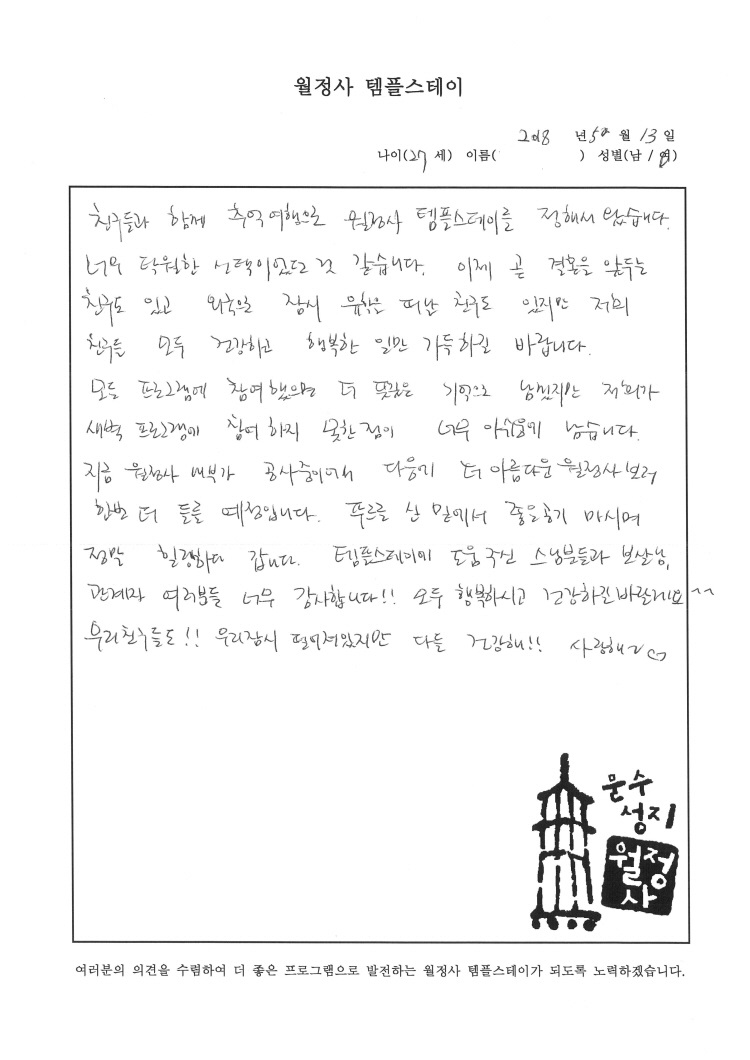 월정사 템플스테이
2018 년 5 월 13 일
나이(27 세) 이름( ) 성별(남 / 여)
친구들과 함께 추억여행으로 월정사 템플스테이를 정해서 왔습니다.
너무 탁월한 선택이었던 것 같습니다. 이제 곧 결혼을 앞두는
친구도 있고 외국으로 잠시 유학을 떠난 친구도 있지만 저희
친구들 모두 건강하고 행복한 일만 가득하길 바랍니다.
모든 프로그램에 참여했으면 더 뜻깊은 기억으로 남겠지만 저희가
새벽 프로그램에 참여 하지 못한 점이 너무 아쉬움에 남습니다.
지금 월정사 내부가 공사중이여서 다음에 더 아름다운 월정사 보러
한번 더 들를 예정입니다. 푸르른 산 밑에서 좋은공기 마시며
정말 힐링하다 갑니다. 템플스테이에 도움주신 스님분들과 보살님,
관계자 여러분들 너무 감사합니다!! 모두 행복하시고 건강하길바랄게요^^
우리친구들도!! 우리잠시 떨어져있지만 다들 건강해!! 사랑해~♡
문수
성지
월정
사
여러분의 의견을 수렴하여 더 좋은 프로그램으로 발전하는 월정사 템플스테이가 되도록 노력하겠습니다.